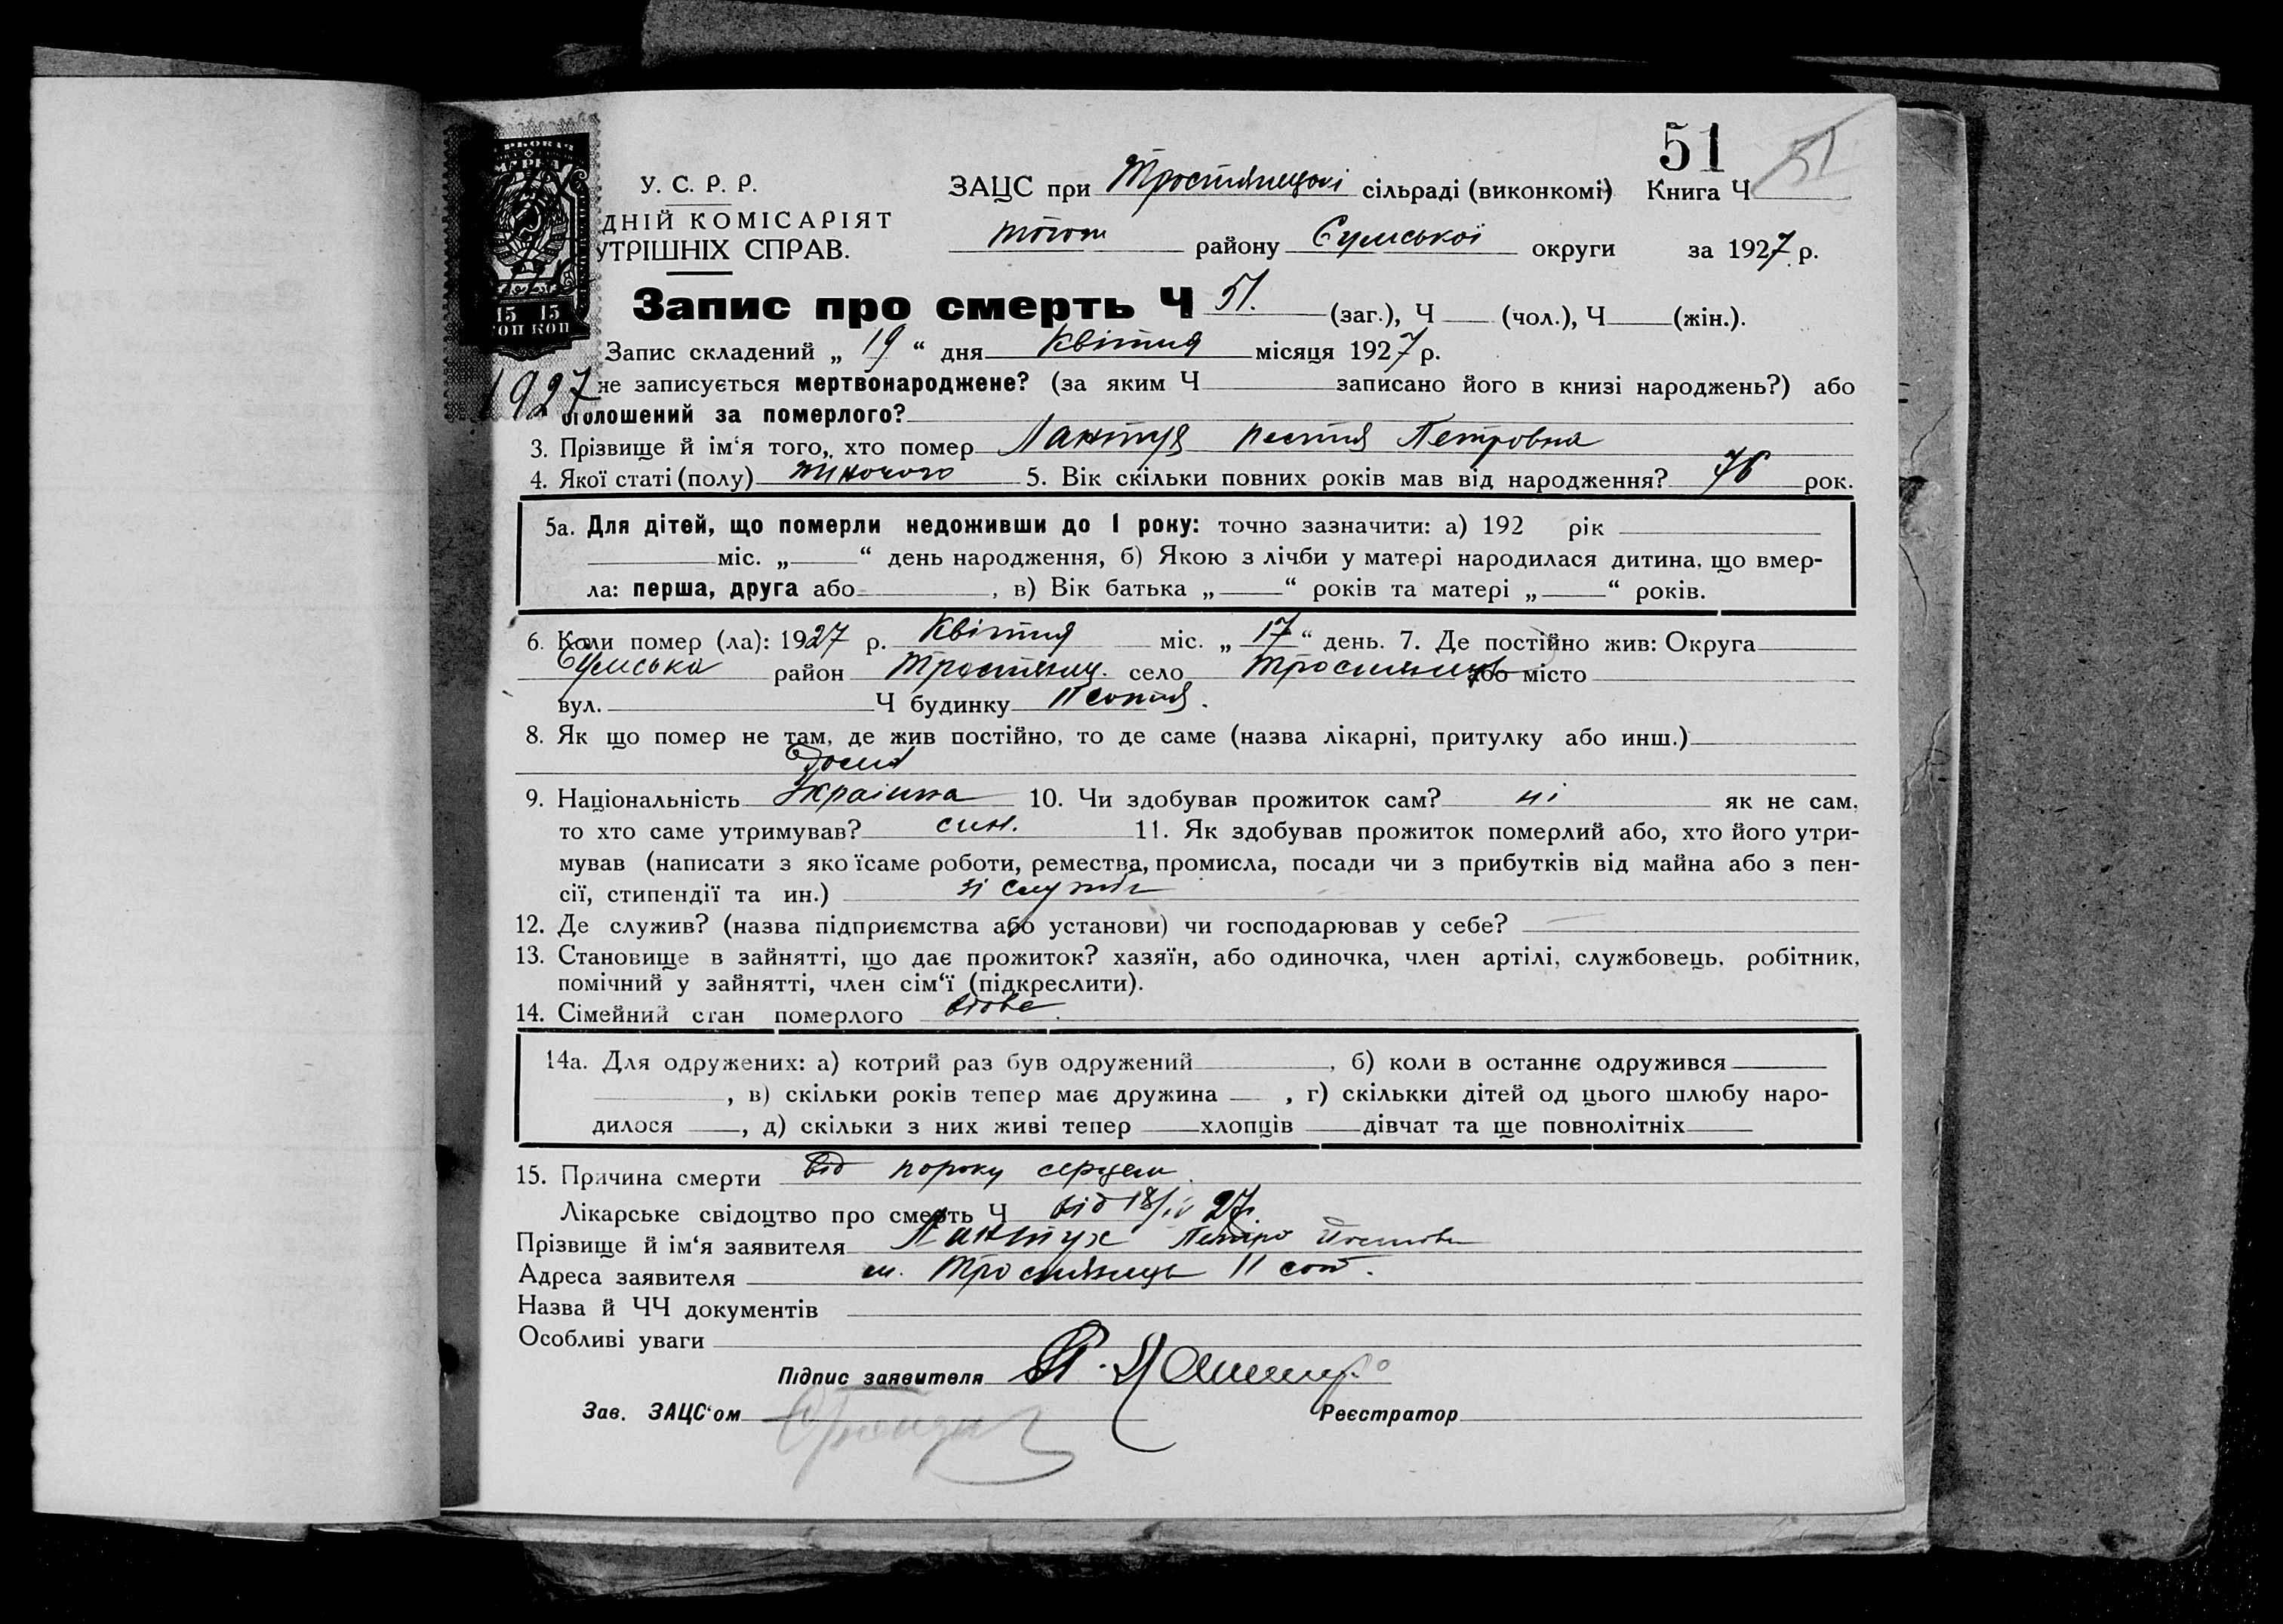 51 51
У. С. Р. Р. ЗАЦС при Тростянецькі сільраді (виконкомі) Книга Ч
ДНІЙ КОМІСАРІЯТ
УТРІШНІХ СПРАВ.
того ж району Сумської округи за 1927 р.
МАРКА
15 15
КОП КОП
1927
Запис про смерть Ч 51. (заг.), Ч (чол.), Ч (жін.).
Запис складений „ 19 “ дня Квітня місяця 1927 р.
не записується мертвонароджене? (за яким Ч записано його в книзі народжень?) або
оголошений за померлого?
3. Прізвище й ім‘я того, хто помер Лантух Петровна
4. Якої статі (полу) жіночого 5. Вік скільки повних років мав від народження? 76 рок.
5а. Для дітей, що померли недоживши до 1 року: точно зазначити: а) 192 рік
міс. „ “ день народження, б) Якою з лічби у матері народилася дитина, що вмер-
ла: перша, друга або , в) Вік батька „ “ років та матері „ “ років.
6. Коли помер (ла): 1927 р. Квітня міс. „ 17 “ день. 7. Де постійно жив: Округа
Сумська район Тростянец. село Тростянець або місто
вул. Ч будинку II сотня.
8. Як що помер не там, де жив постійно, то де саме (назва лікарні, притулку або инш.)
Дома
9. Національність Українка 10. Чи здобував прожиток сам? ні як не сам,
то хто саме утримував? син. 11. Як здобував прожиток померлий або, хто його утри-
мував (написати з якоїсаме роботи, ремества, промисла, посади чи з прибутків від майна або з пен-
сії, стипендії та ин.) зі служби
12. Де служив? (назва підприємства або установи) чи господарював у себе?
13. Становище в зайнятті, що дає прожиток? хазяїн, або одиночка, член артілі, службовець, робітник,
помічний у зайнятті, член сім‘ї (підкреслити).
14. Сімейний стан померлого вдова.
14а. Для одружених: а) котрий раз був одружений , б) коли в останнє одружився
, в) скільки років тепер має дружина , г) скількки дітей од цього шлюбу наро-
дилося , д) скільки з них живі тепер хлопців дівчат та ще повнолітніх
15. Причина смерти від пороку серцем
Лікарське свідоцтво про смерть Ч від 18/IV 27.
Прізвище й ім‘я заявителя Лантух Петро
Адреса заявителя м. Тростянець II сот.
Назва й ЧЧ документів
Особливі уваги
Підпис заявителя П. Лантух
Зав. ЗАЦС‘ом Реєстратор